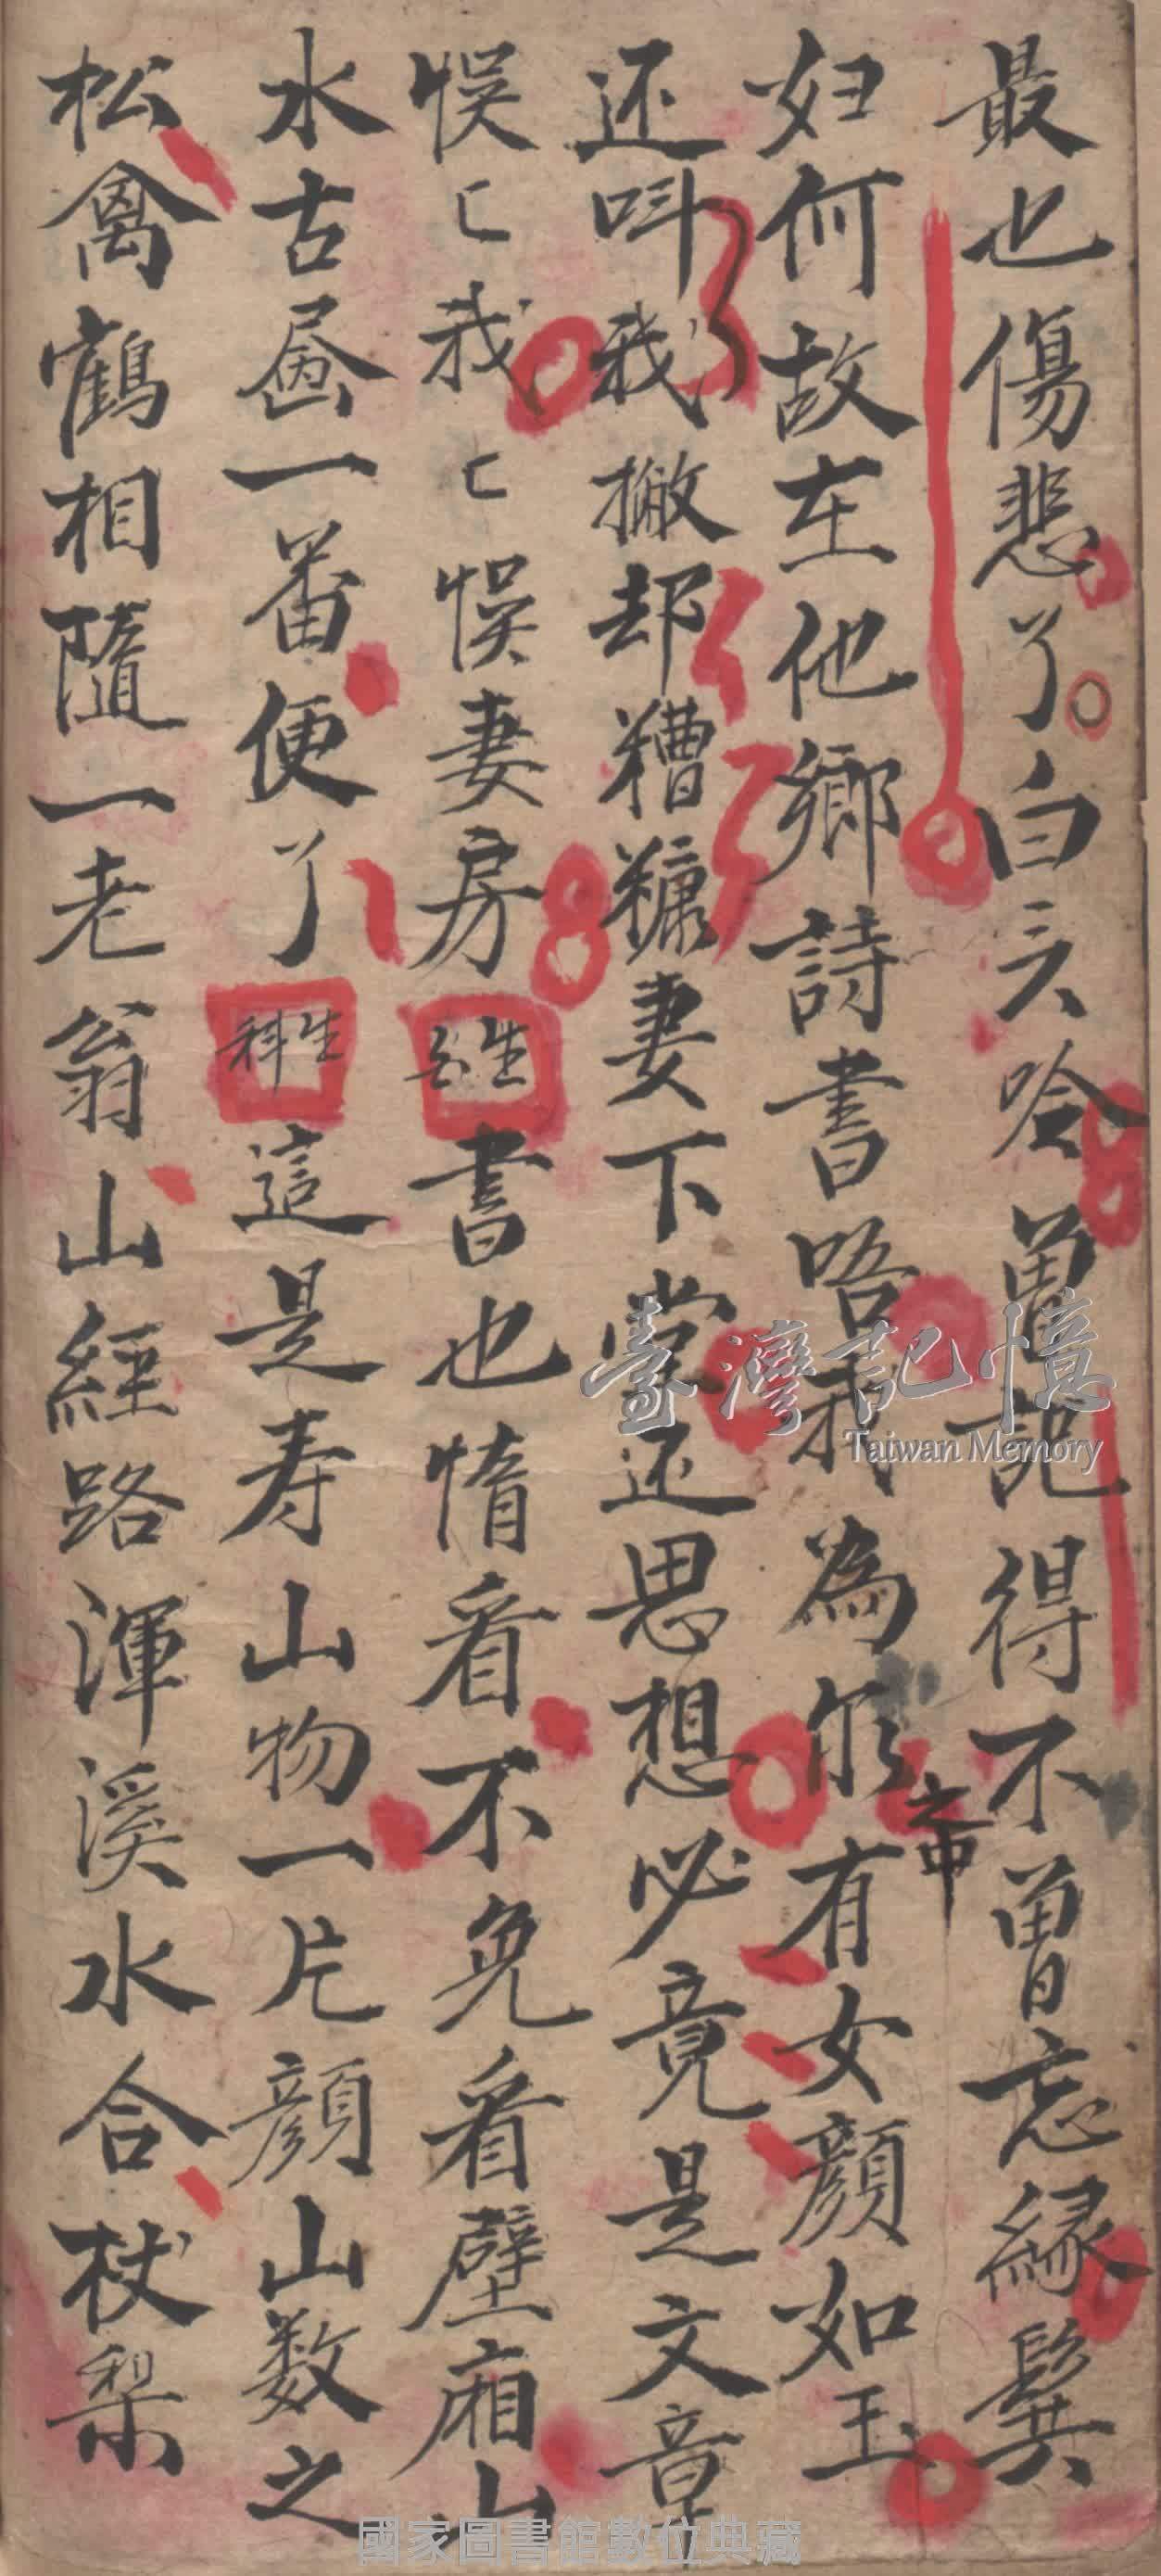 最也傷悲了白云唅曽記得不曽忘緑鬓
妇何故在他鄉詩書唔我為你有女顔如玉
之中
还呌我撇却糟糠妻下堂还思想必竟是文章
悮匕我匕悮妻房
生
書也惰看不免看壁廂山
水古畫一番便了
生科
這是寿山物一片顔山数之
松禽鶴相隨一老翁山經路渾溪水合杖梨
臺灣記憶
Taiwan Memory
國家圖書館數位典藏